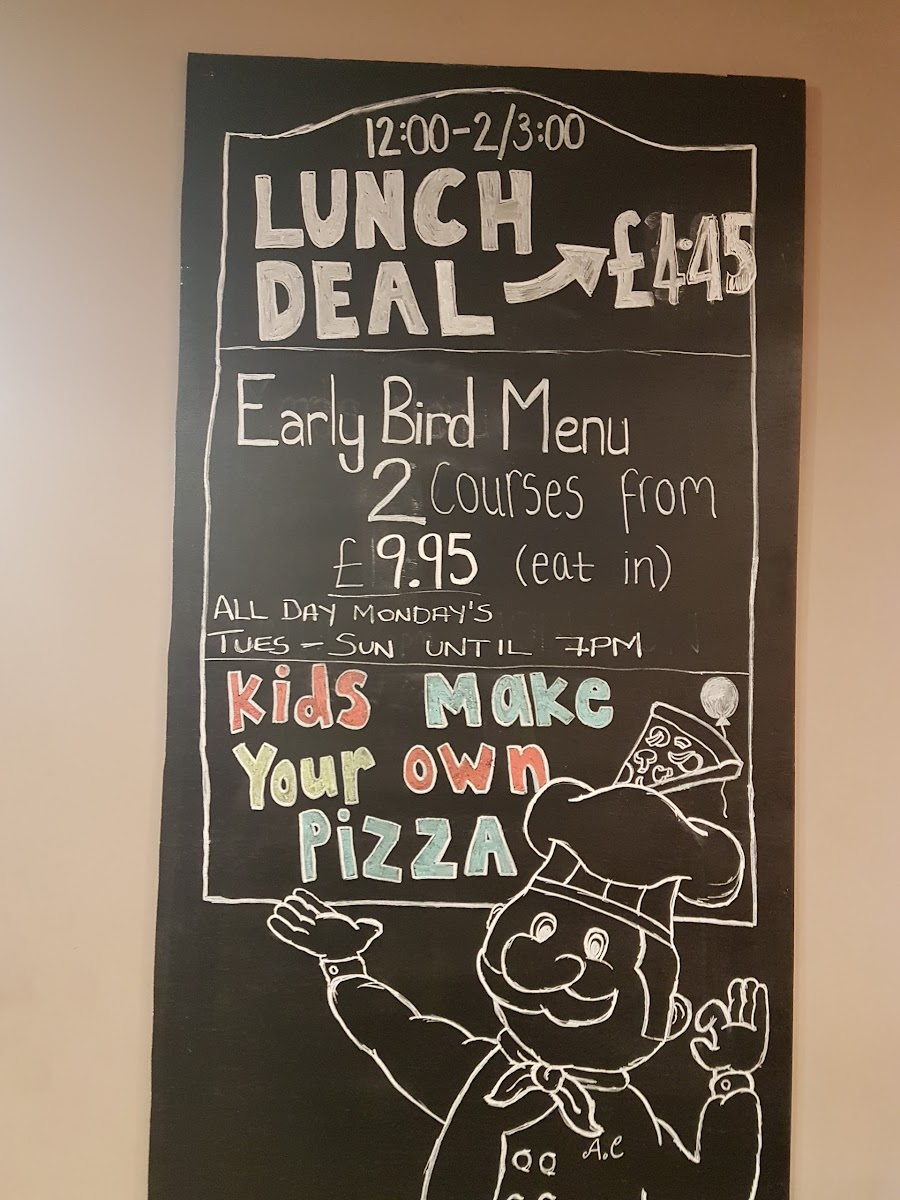 12:00-2/3:00
LUNCH
DEAL £4.45
Early Bird Menu
2 Courses from
£9.95 (eat in)
ALL DAY MONDAY'S
TUES - SUN UNTIL 7PM
Kids Make
Your own
Pizza
A.C